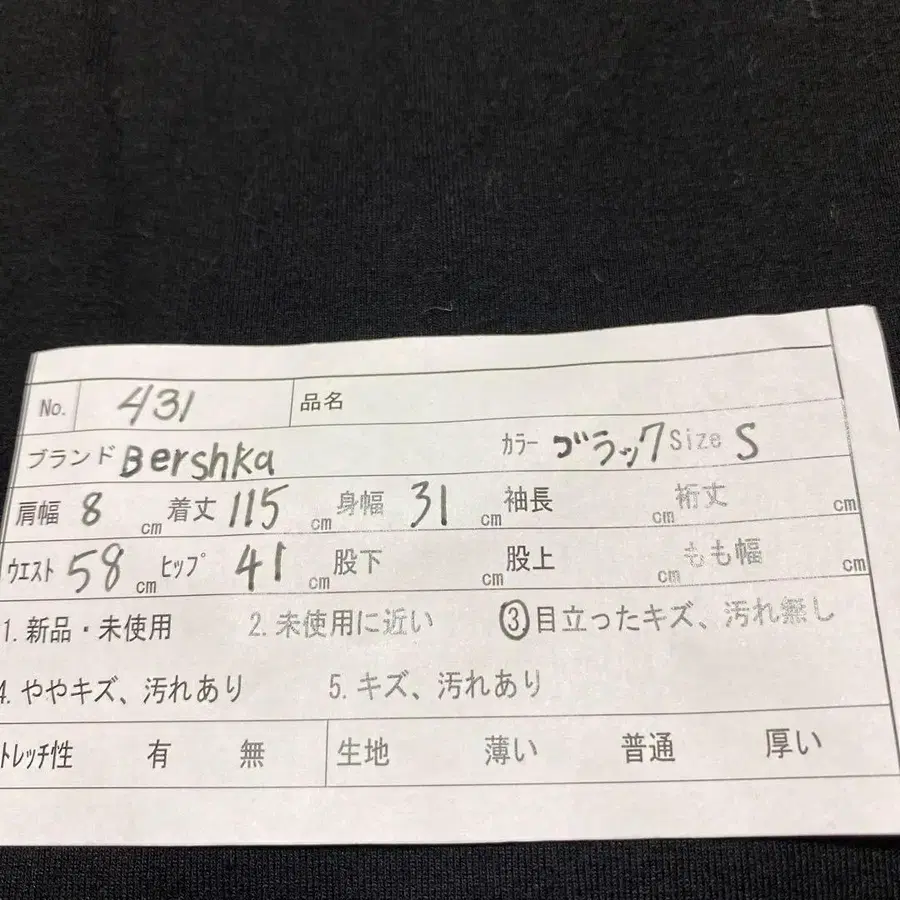 No. 431 品名
ブランド Bershka カラー ブラック Size S
肩幅 8 cm 着丈 115 cm 身幅 31 cm 袖長 cm 裄丈 cm
ウエスト 58 cm ヒップ 41 cm 股下 cm 股上 cm もも幅 cm
1. 新品・未使用 2. 未使用に近い ③目立ったキズ、汚れ無し
4. ややキズ、汚れあり 5. キズ、汚れあり
トレッチ性 有 無 生地 薄い 普通 厚い